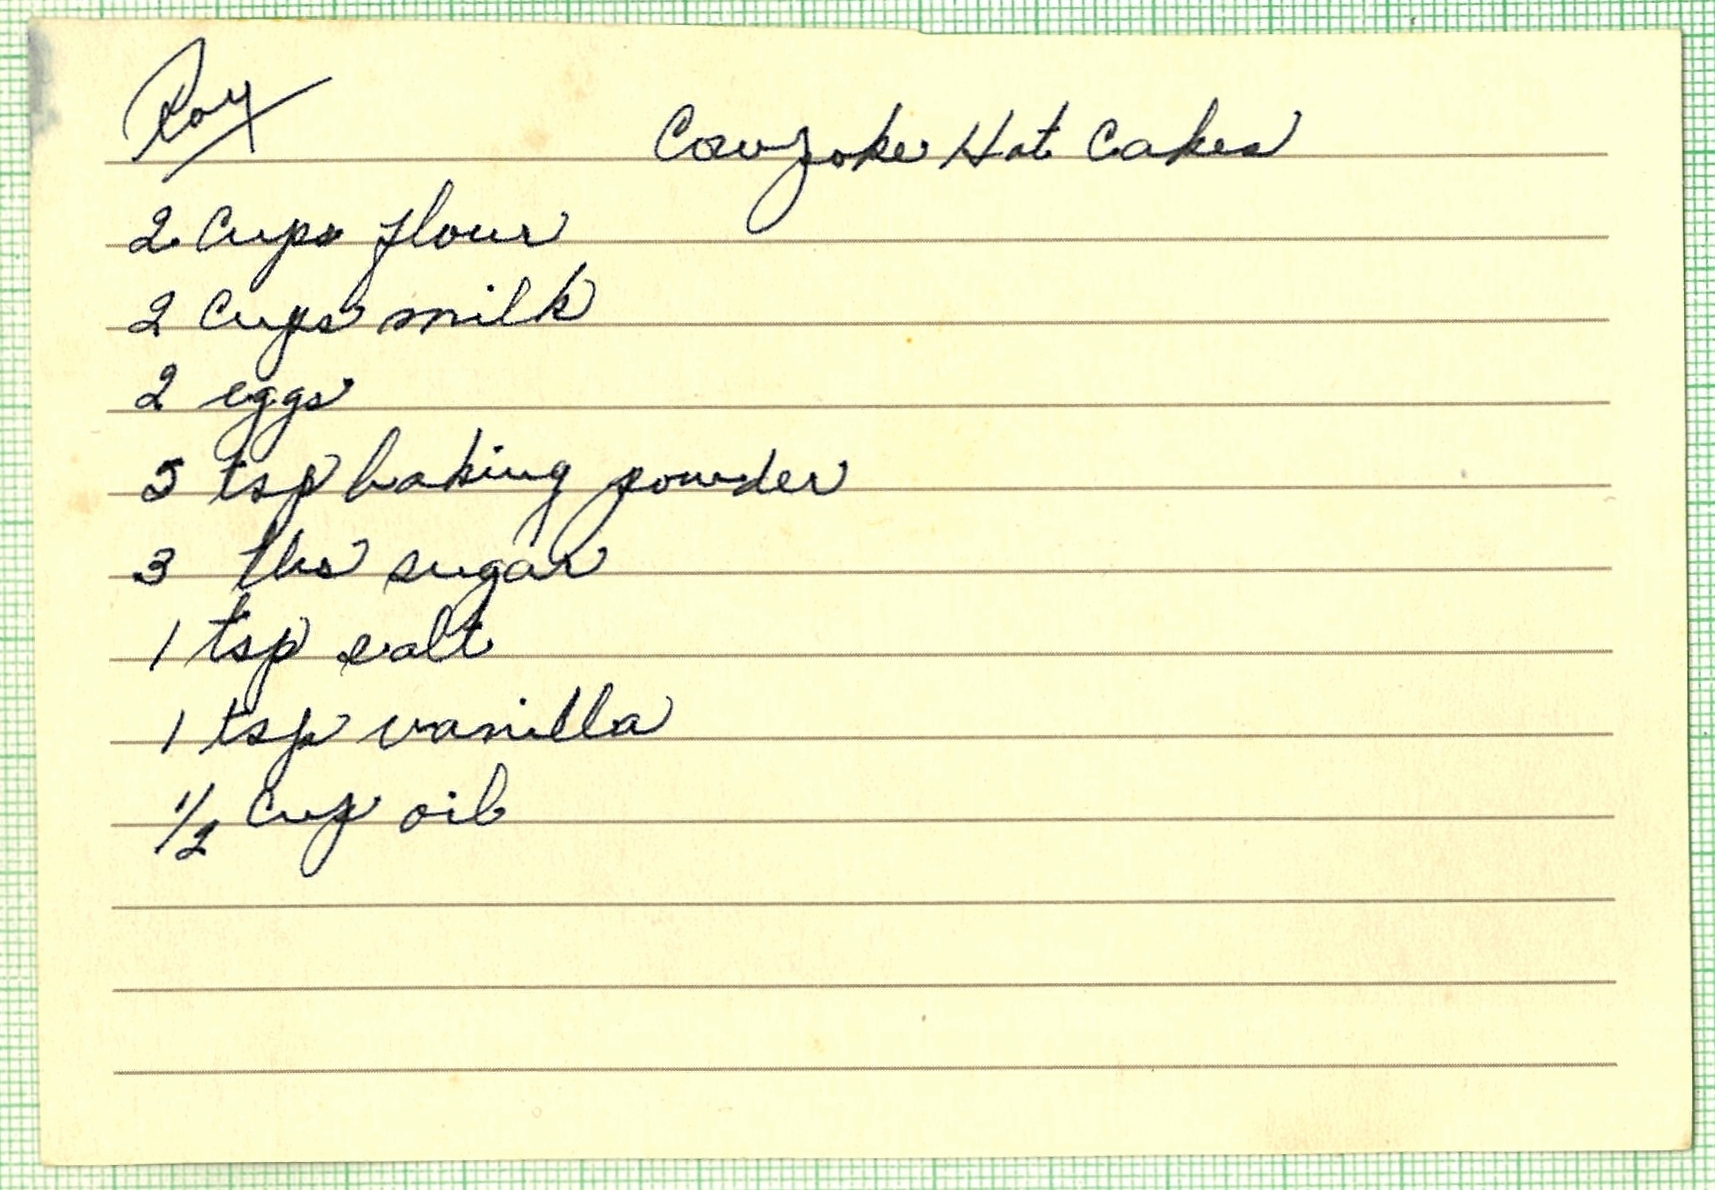 Roy
Cowpoke Hot Cakes
2 Cups flour
2 Cups milk
2 eggs
5 tsp baking powder
3 tbs sugar
1 tsp salt
1 tsp vanilla
1/2 Cup oil